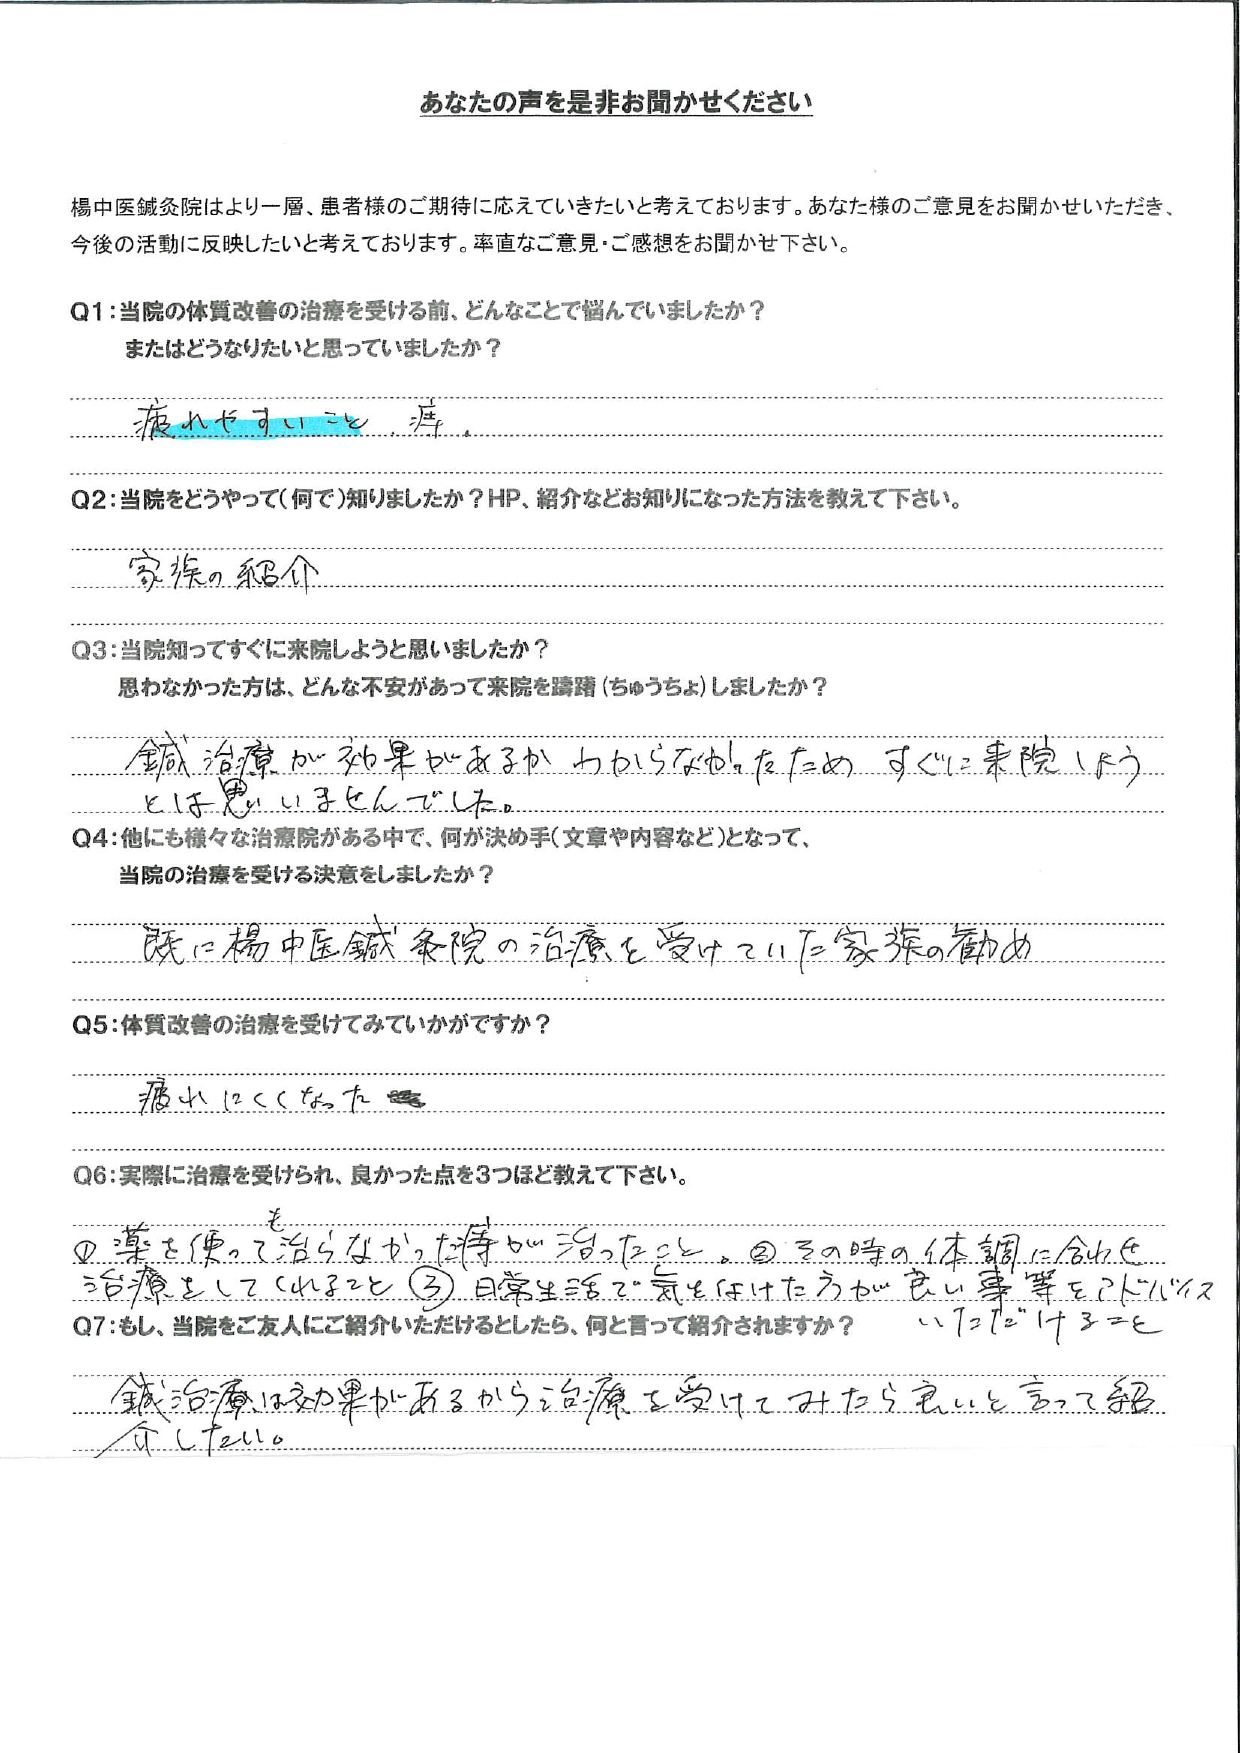 あなたの声を是非お聞かせください
楊中医鍼灸院はより一層、患者様のご期待に応えていきたいと考えております。あなた様のご意見をお聞かせいただき、
今後の活動に反映したいと考えております。率直なご意見・ご感想をお聞かせ下さい。
Q1:当院の体質改善の治療を受ける前、どんなことで悩んでいましたか？
またはどうなりたいと思っていましたか？
疲れやすいこと、痔、
Q2:当院をどうやって(何で)知りましたか？HP、紹介などお知りになった方法を教えて下さい。
家族の紹介
Q3:当院知ってすぐに来院しようと思いましたか？
思わなかった方は、どんな不安があって来院を躊躇(ちゅうちょ)しましたか？
鍼治療が効果があるかわからなかったため すぐに来院しよう
とは思いいませんでした。
Q4:他にも様々な治療院がある中で、何が決め手(文章や内容など)となって、
当院の治療を受ける決意をしましたか？
既に楊中医鍼灸院の治療を受けていた家族の勧め
Q5:体質改善の治療を受けてみていかがですか？
疲れにくくなった
Q6:実際に治療を受けられ、良かった点を3つほど教えて下さい。
①薬を使っても治らなかった痔が治ったこと。②その時の体調に合わせ
治療をしてくれること ③日常生活で気を付けた方が良い事等をアドバイス
いただけること
Q7:もし、当院をご友人にご紹介いただけるとしたら、何と言って紹介されますか？
鍼治療は効果があるから治療を受けてみたら良いと言って紹
介したい。